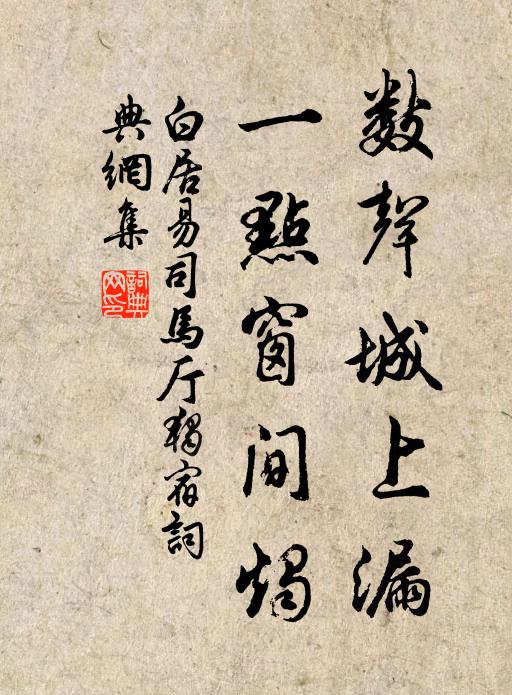 數聲城上漏
一點窗間燭
白居易司馬厅獨宿詞
典網集
詞典網印